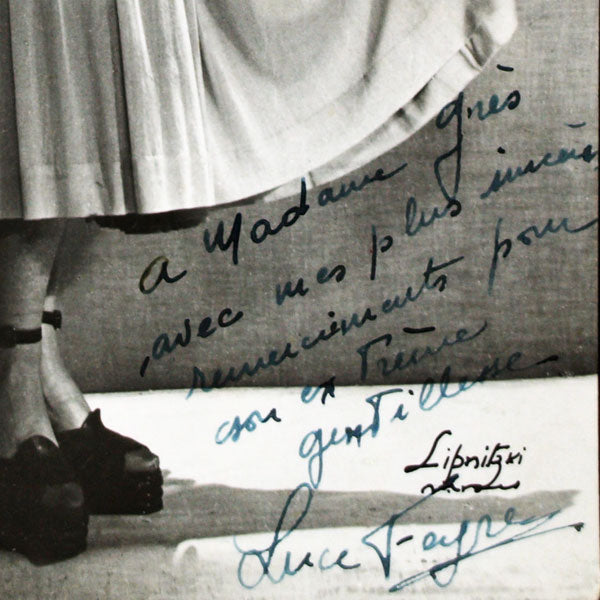 A Madame Grès
avec mes plus sincères
remerciements pour
son extrême
gentillesse
Lipnitzki
Luce Feyrer